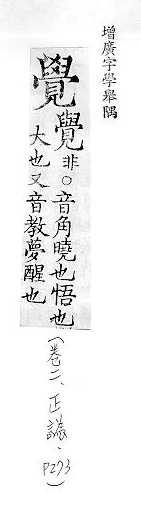 增廣字學舉隅
覺覺非○音角曉也悟也
大也又音教夢醒也
(卷二、正譌、P293)